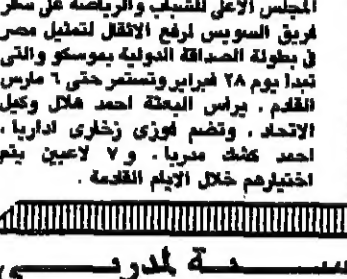 المجلس الأعلى للشباب والرياضة على سفر
فريق السويس لرفع الاثقال لتمثيل مصر
في بطولة الصداقة الدولية بموسكو والتى
تبدأ يوم ٢٨ فبراير وتستمر حتى ٦ مارس
القادم . يرأس البعثة احمد هلال وكيل
الاتحاد ، وتضم فوزى زخارى اداريا ،
احمد كشك مدربا ، و ٧ لاعبين يتم
اختيارهم خلال الايام القادمة .